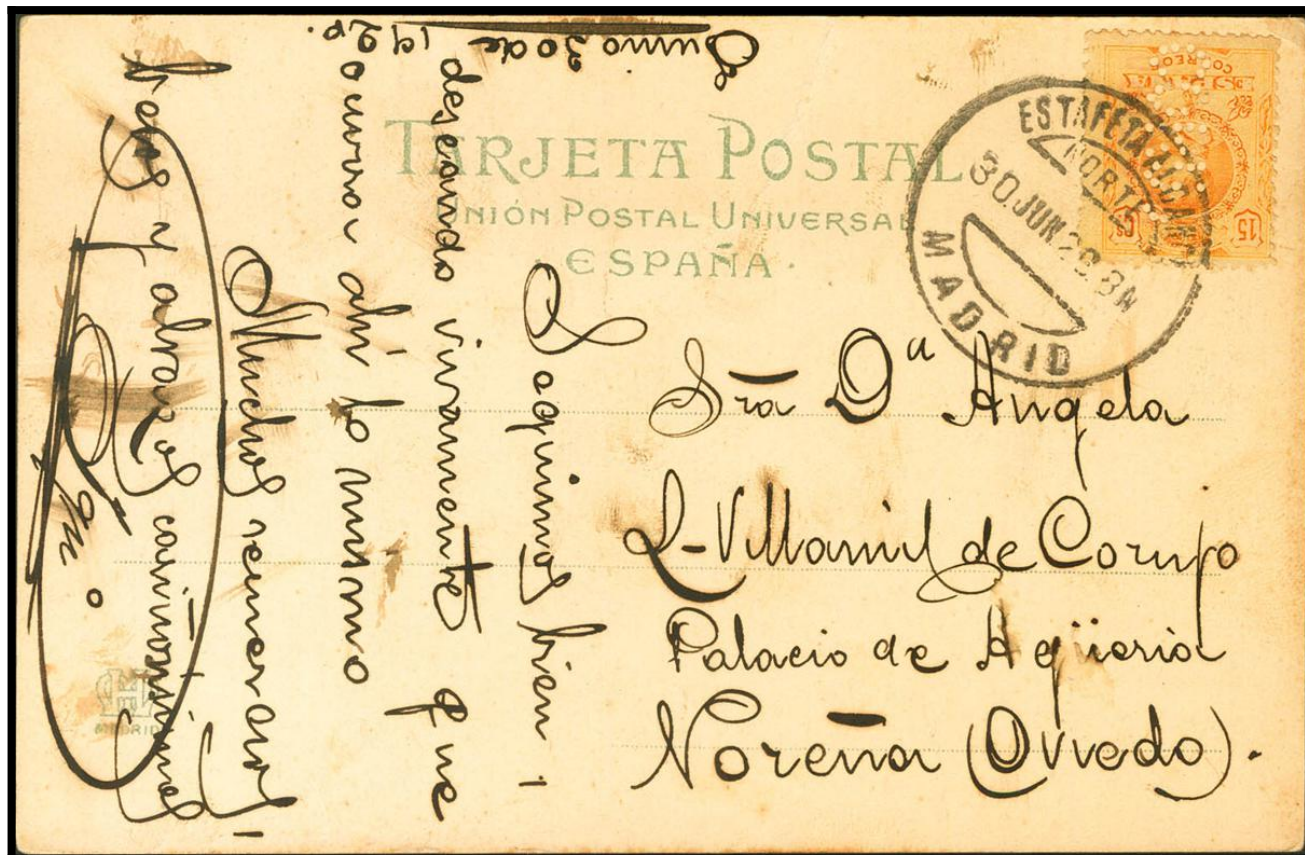 TARJETA POSTAL
UNIÓN POSTAL UNIVERSAL
· ESPAÑA ·
CORREOS
15 Cs
15
ESTAFETA ALCANCE
NORTE
30.JUN.20.8N
MADRID
Sra Dª Angela
L-Villamil de Corujo
Palacio de Agüeria
Noreña (Oviedo).
Junio 30 de
1920.
Seguimos bien y
deseando vivamente que
ocurra ahí lo mismo
Muchos
besos y abrazos cariñosísimos
MADRID